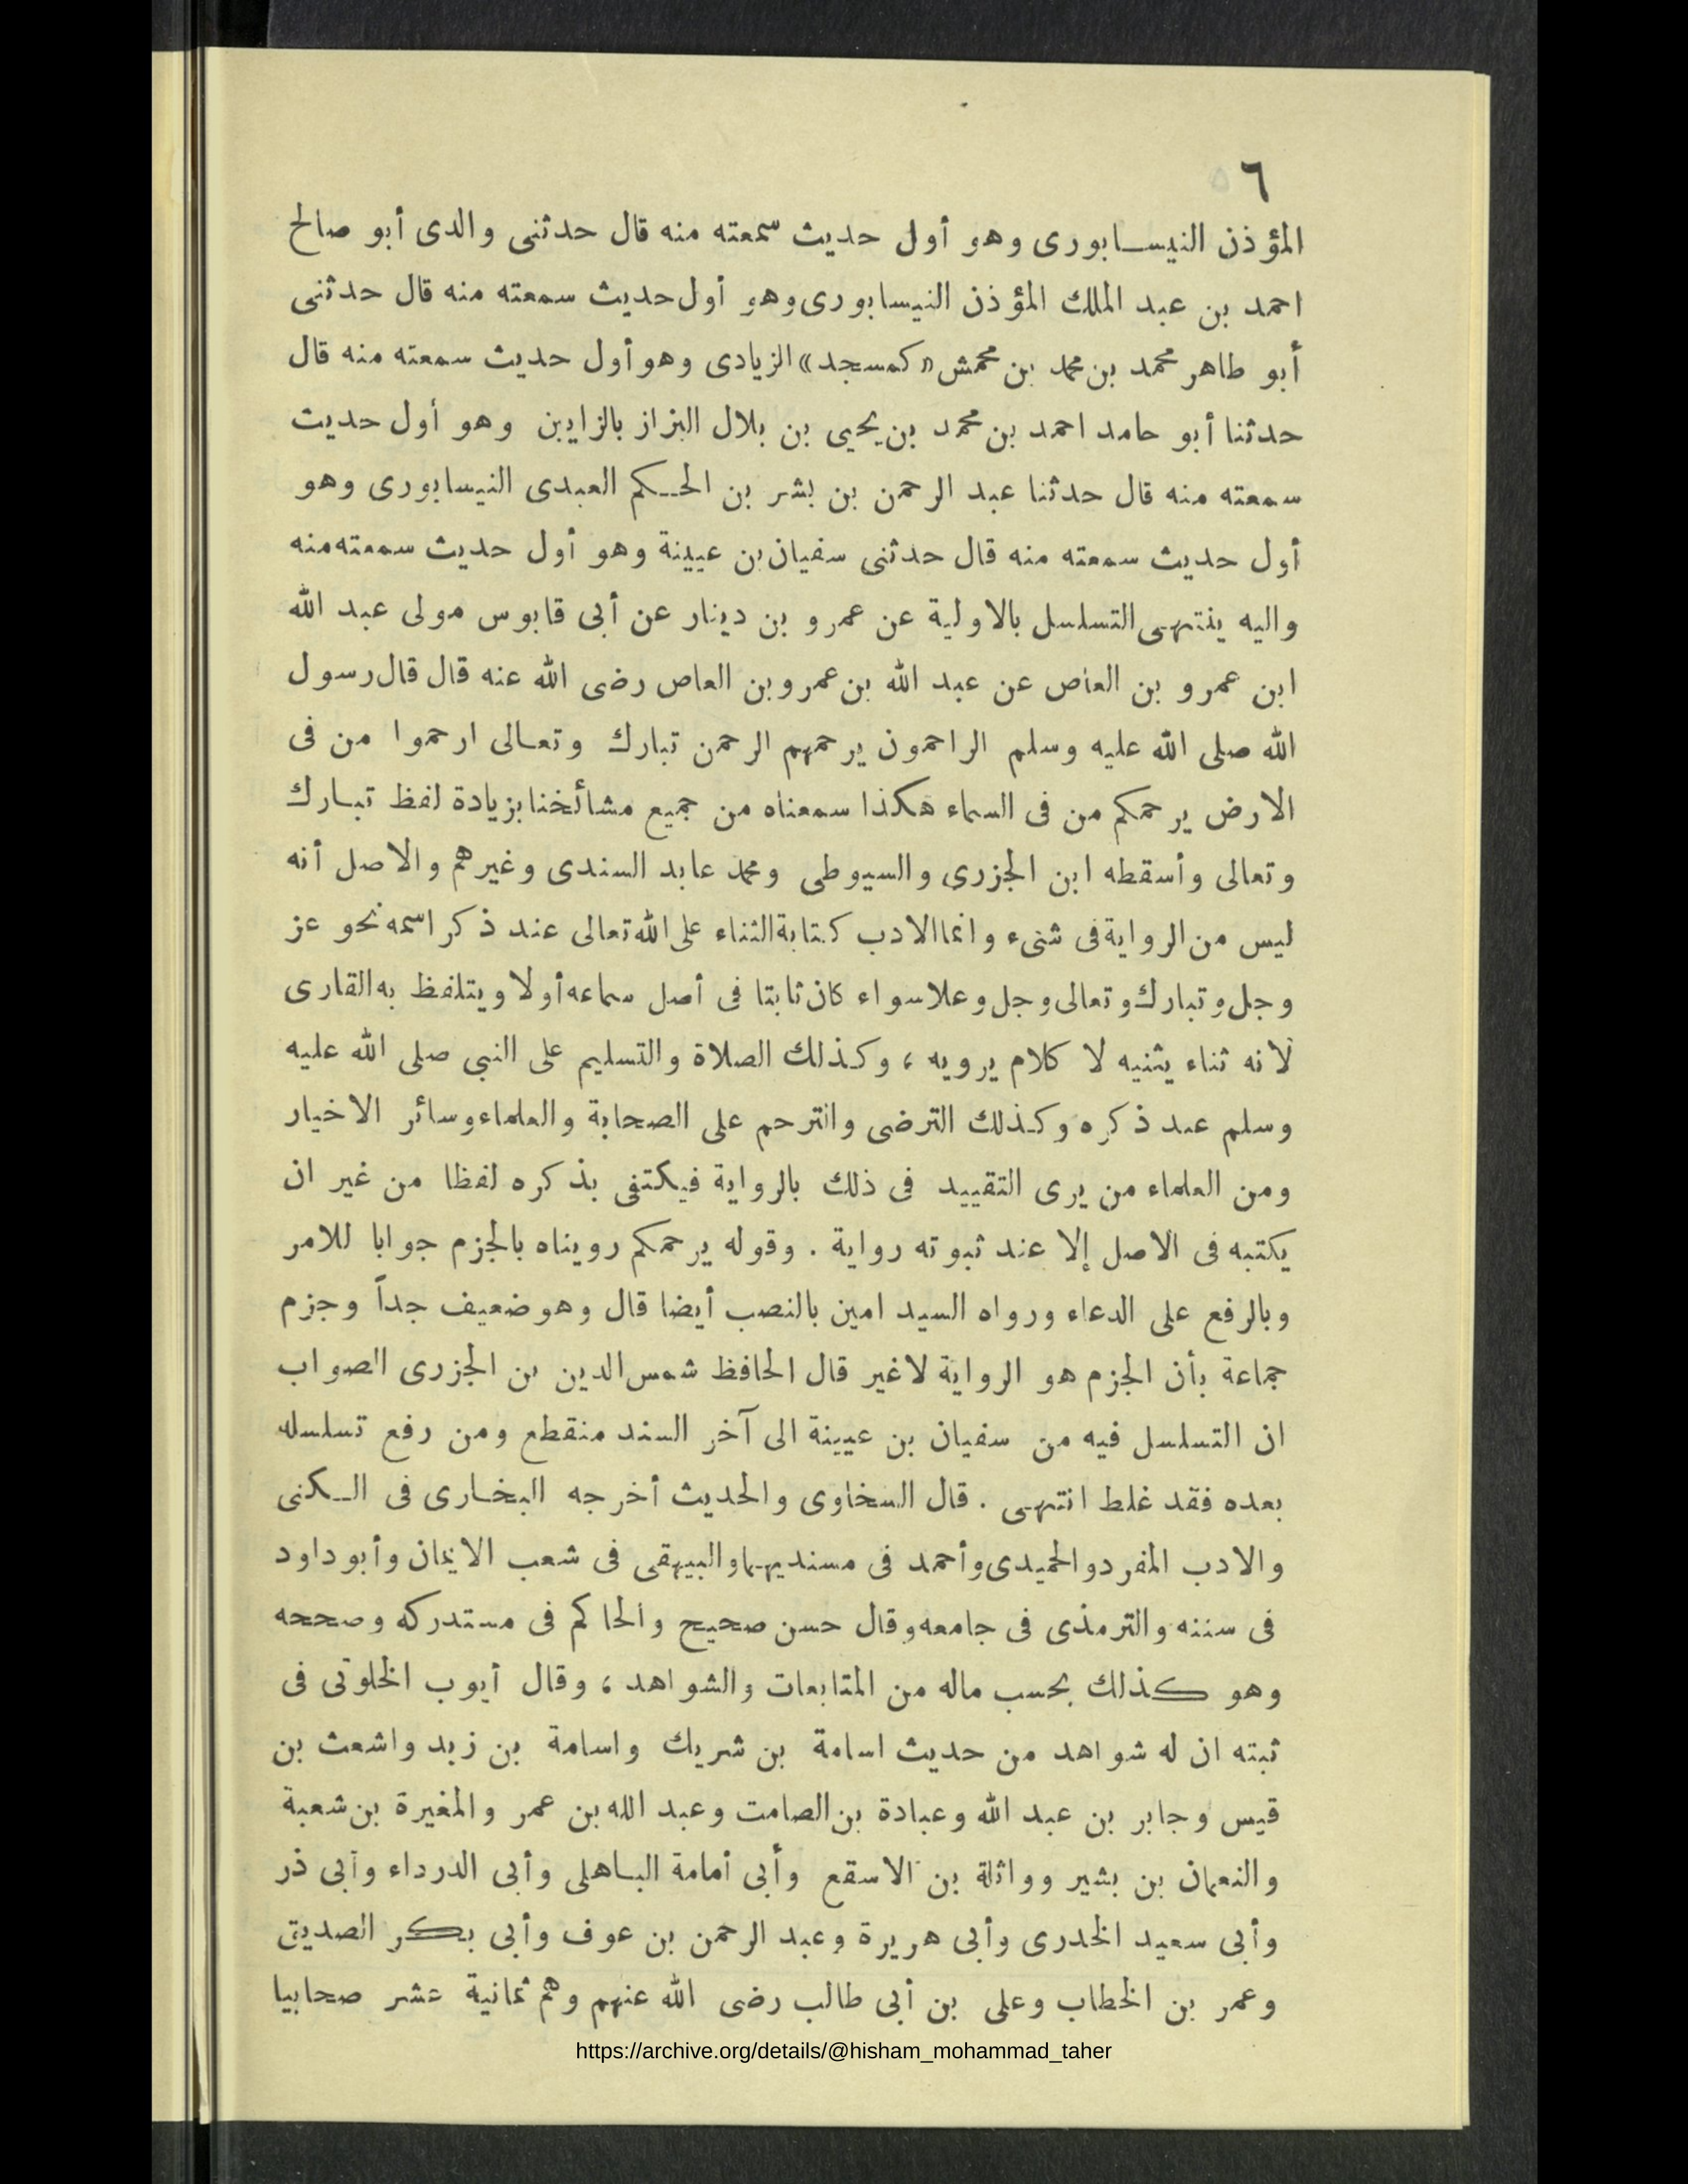 ٦
المؤذن النيسابورى وهو أول حديث سمعته منه قال حدثنى والدى أبو صالح
احمد بن عبد الملك المؤذن النيسابورى وهو أول حديث سمعته منه قال حدثنى
أبو طاهر محمد بن محمد بن محمش «كمسجد» الزيادى وهو أول حديث سمعته منه قال
حدثنا أبو حامد احمد بن محمد بن يحيى بن بلال البزاز بالزايين وهو أول حديث
سمعته منه قال حدثنا عبد الرحمن بن بشر بن الحكم العبدى النيسابورى وهو
أول حديث سمعته منه قال حدثنى سفيان بن عيينة وهو أول حديث سمعته منه
واليه ينتهى التسلسل بالاولية عن عمرو بن دينار عن أبى قابوس مولى عبد الله
ابن عمرو بن العاص عن عبد الله بن عمرو بن العاص رضى الله عنه قال قال رسول
الله صلى الله عليه وسلم الراحمون يرحمهم الرحمن تبارك وتعالى ارحموا من فى
الارض يرحمكم من فى السماء هكذا سمعناه من جميع مشائخنا بزيادة لفظ تبارك
وتعالى وأسقطه ابن الجزرى والسيوطى ومحمد عابد السندى وغيرهم والاصل أنه
ليس من الرواية فى شىء وانما الادب كتابة الثناء على الله تعالى عند ذكر اسمه نحو عز
وجل وتبارك وتعالى وجل وعلا سواء كان ثابتا فى أصل سماعه أولا ويتلفظ به القارى
لانه ثناء يثنيه لا كلام يرويه ، وكذلك الصلاة والتسليم على النبى صلى الله عليه
وسلم عند ذكره وكذلك الترضى والترحم على الصحابة والعلماء وسائر الاخيار
ومن العلماء من يرى التقييد فى ذلك بالرواية فيكتفى بذكره لفظا من غير ان
يكتبه فى الاصل إلا عند ثبوته رواية . وقوله يرحمكم رويناه بالجزم جوابا للامر
وبالرفع على الدعاء ورواه السيد امين بالنصب أيضا قال وهو ضعيف جداً وجزم
جماعة بأن الجزم هو الرواية لاغير قال الحافظ شمس الدين بن الجزرى الصواب
ان التسلسل فيه من سفيان بن عيينة الى آخر السند منقطع ومن رفع تسلسله
بعده فقد غلط انتهى . قال السخاوى والحديث أخرجه البخارى فى الكنى
والادب المفرد والحميدى وأحمد فى مسنديهما والبيهقى فى شعب الايمان وأبو داود
فى سننه والترمذى فى جامعه وقال حسن صحيح والحاكم فى مستدركه وصححه
وهو كذلك بحسب ماله من المتابعات والشواهد ، وقال أيوب الخلوتى فى
ثبته ان له شواهد من حديث اسامة بن شريك واسامة بن زيد واشعث بن
قيس وجابر بن عبد الله وعبادة بن الصامت وعبد الله بن عمر والمغيرة بن شعبة
والنعمان بن بشير وواثلة بن الاسقع وأبى أمامة الباهلى وأبى الدرداء وأبى ذر
وأبى سعيد الخدرى وأبى هريرة وعبد الرحمن بن عوف وأبى بكر الصديق
وعمر بن الخطاب وعلى بن أبى طالب رضى الله عنهم وهم ثمانية عشر صحابيا
https://archive.org/details/@hisham_mohammad_taher